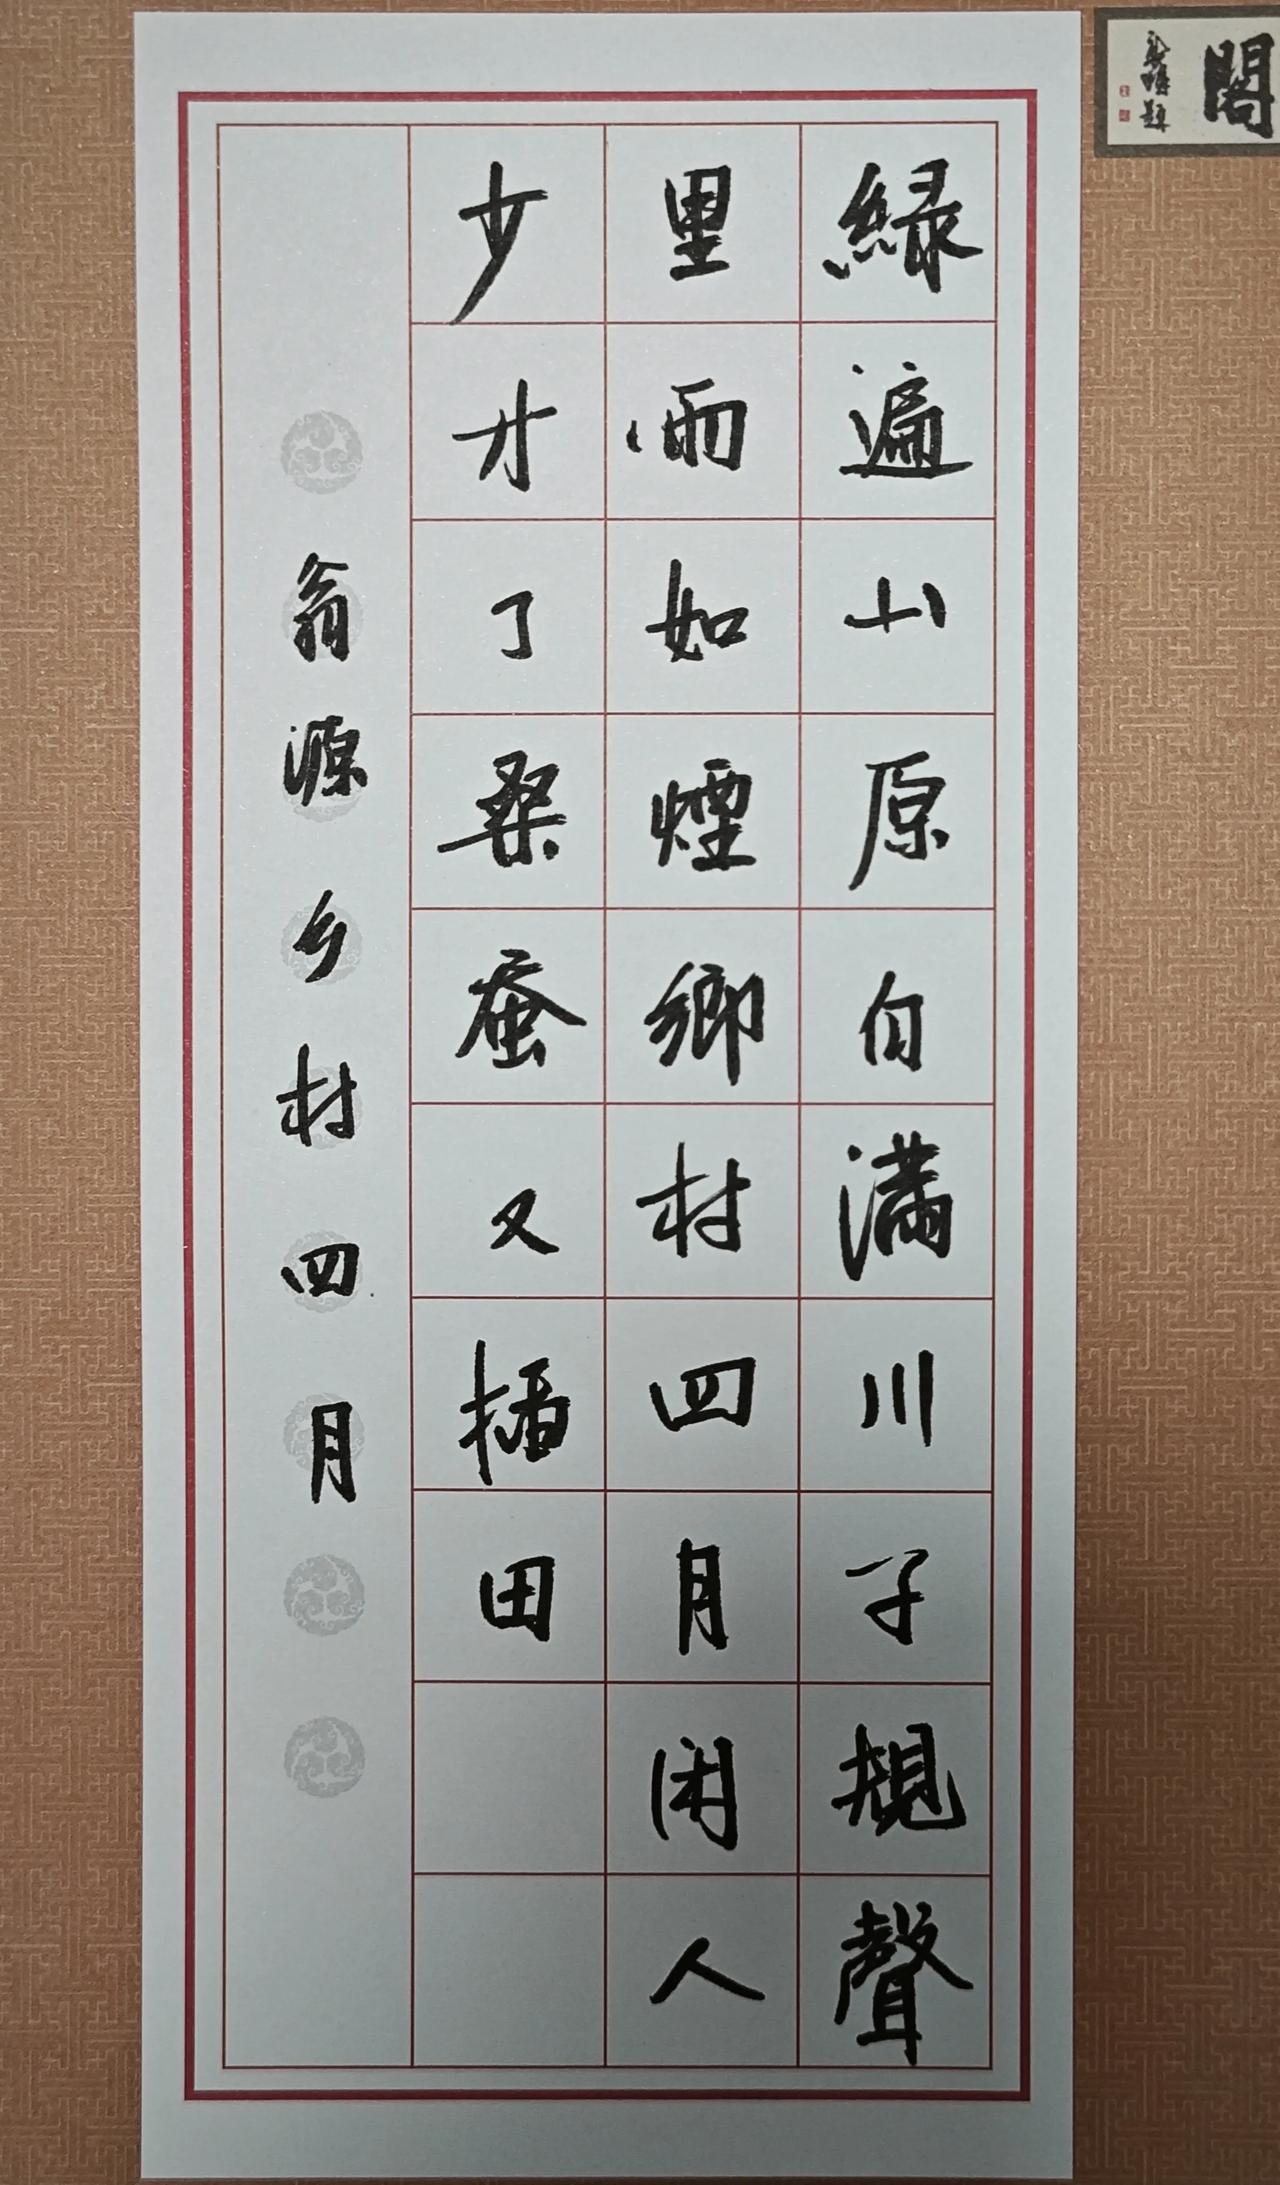 緑遍山原白满川子規聲
里雨如煙鄉村四月闲人
少才了桑蚕又插田
翁源乡村四月
閣
題